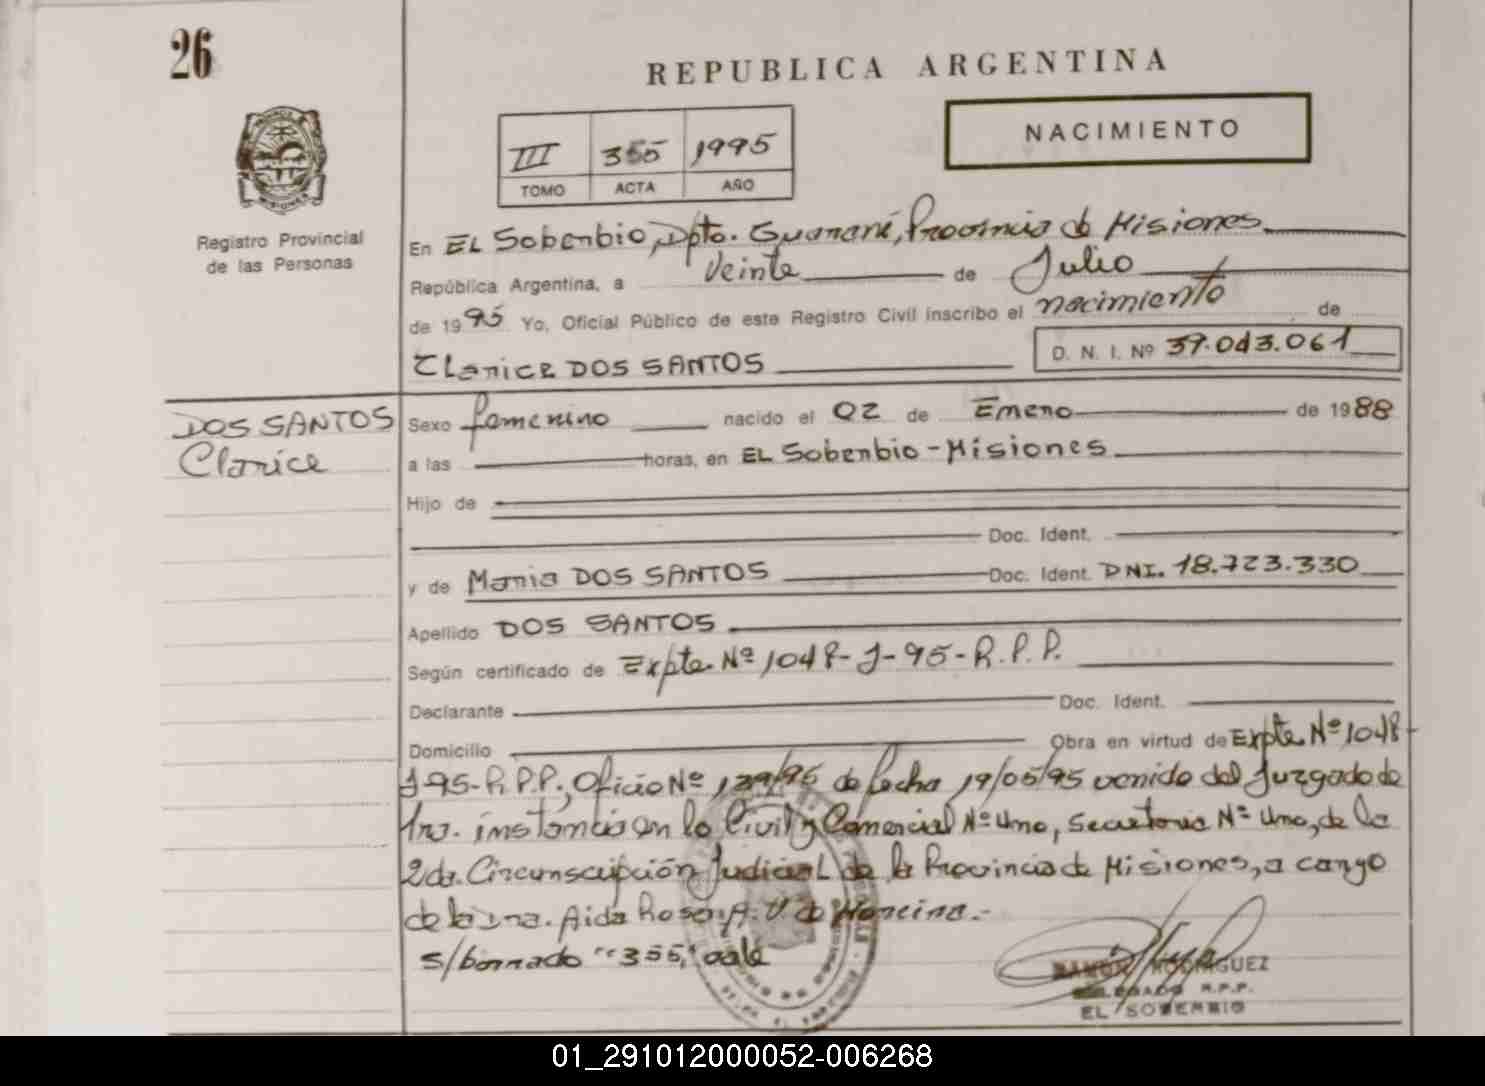 26
REPUBLICA ARGENTINA
NACIMIENTO
III 355 1995
TOMO ACTA AÑO
Registro Provincial
de las Personas
En EL Soberbio, Dpto. Guaraní, Provincia de Misiones
República Argentina, a Veinte de Julio
de 1995 Yo, Oficial Público de este Registro Civil inscribo el nacimiento de
Clarice DOS SANTOS D. N. I. Nº 37.043.061
DOS SANTOS
Clarice
Sexo femenino nacido el 02 de Enero de 1988
a las horas, en EL Soberbio - Misiones
Hijo de
Doc. Ident.
y de Maria DOS SANTOS Doc. Ident. DNI. 18.723.330
Apellido DOS SANTOS
Según certificado de Expte. Nº 1048-J-95-R.P.P.
Declarante Doc. Ident.
Domicilio Obra en virtud de Expte. Nº 1048-
J-95-R.P.P., Oficio Nº de fecha 19/05/95 venido del Juzgado de
1ra. instancia en lo Civil y Comercial Nº Uno, Secretaria Nº Uno, de la
2da. Circunscripción Judicial de la Provincia de Misiones, a cargo
de la Dra. Aida Rosa A. V. de
s/borrado "355," vale
RAMON RODRIGUEZ
DELEGADO R.P.P.
EL SOBERBIO
01_291012000052-006268